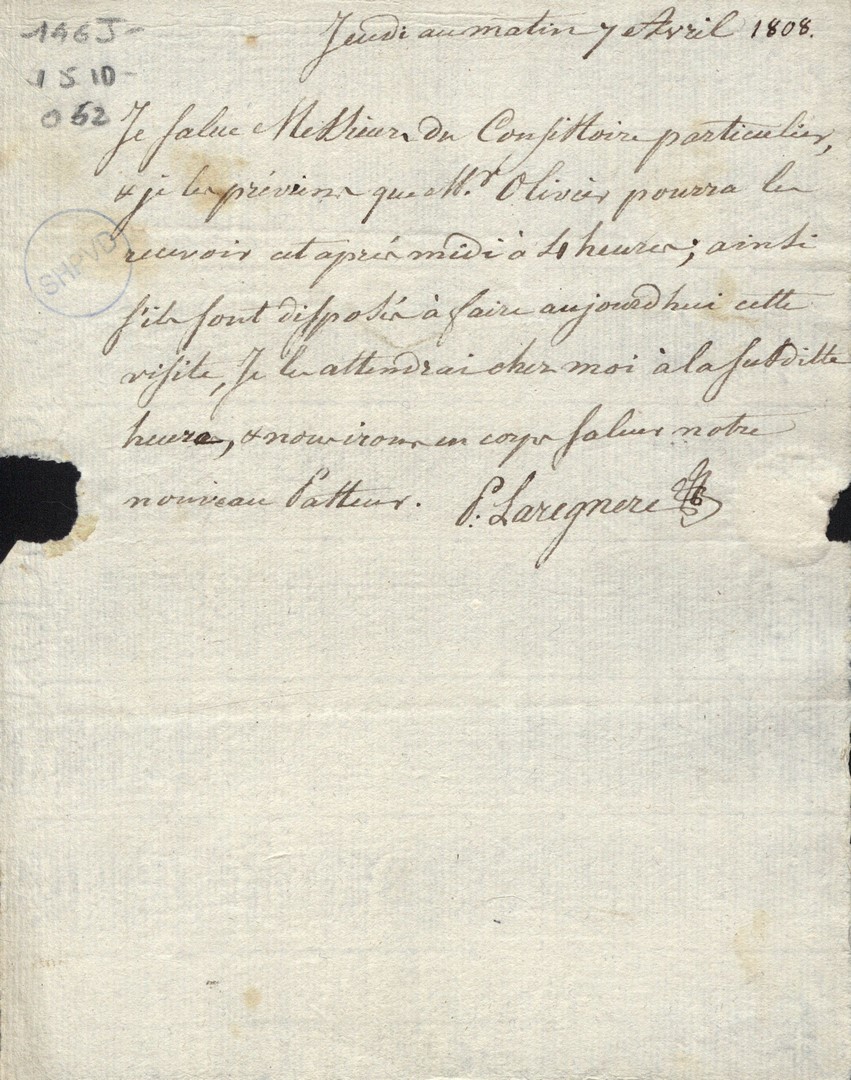 146J-
1510-
062
SHPVD
Jeudi au matin 7 Avril 1808.
Je salue Messieurs du Consistoire particulier,
& je les préviens que M.r Olivier pourra les
recevoir cet après midi à 4 heures; ainsi
s'ils sont disposés à faire aujourdhui cette
visite, Je les attendrai chez moi à la susditte
heure, & nous irons en corps saluer notre
nouveau Pasteur. P. Laregnere